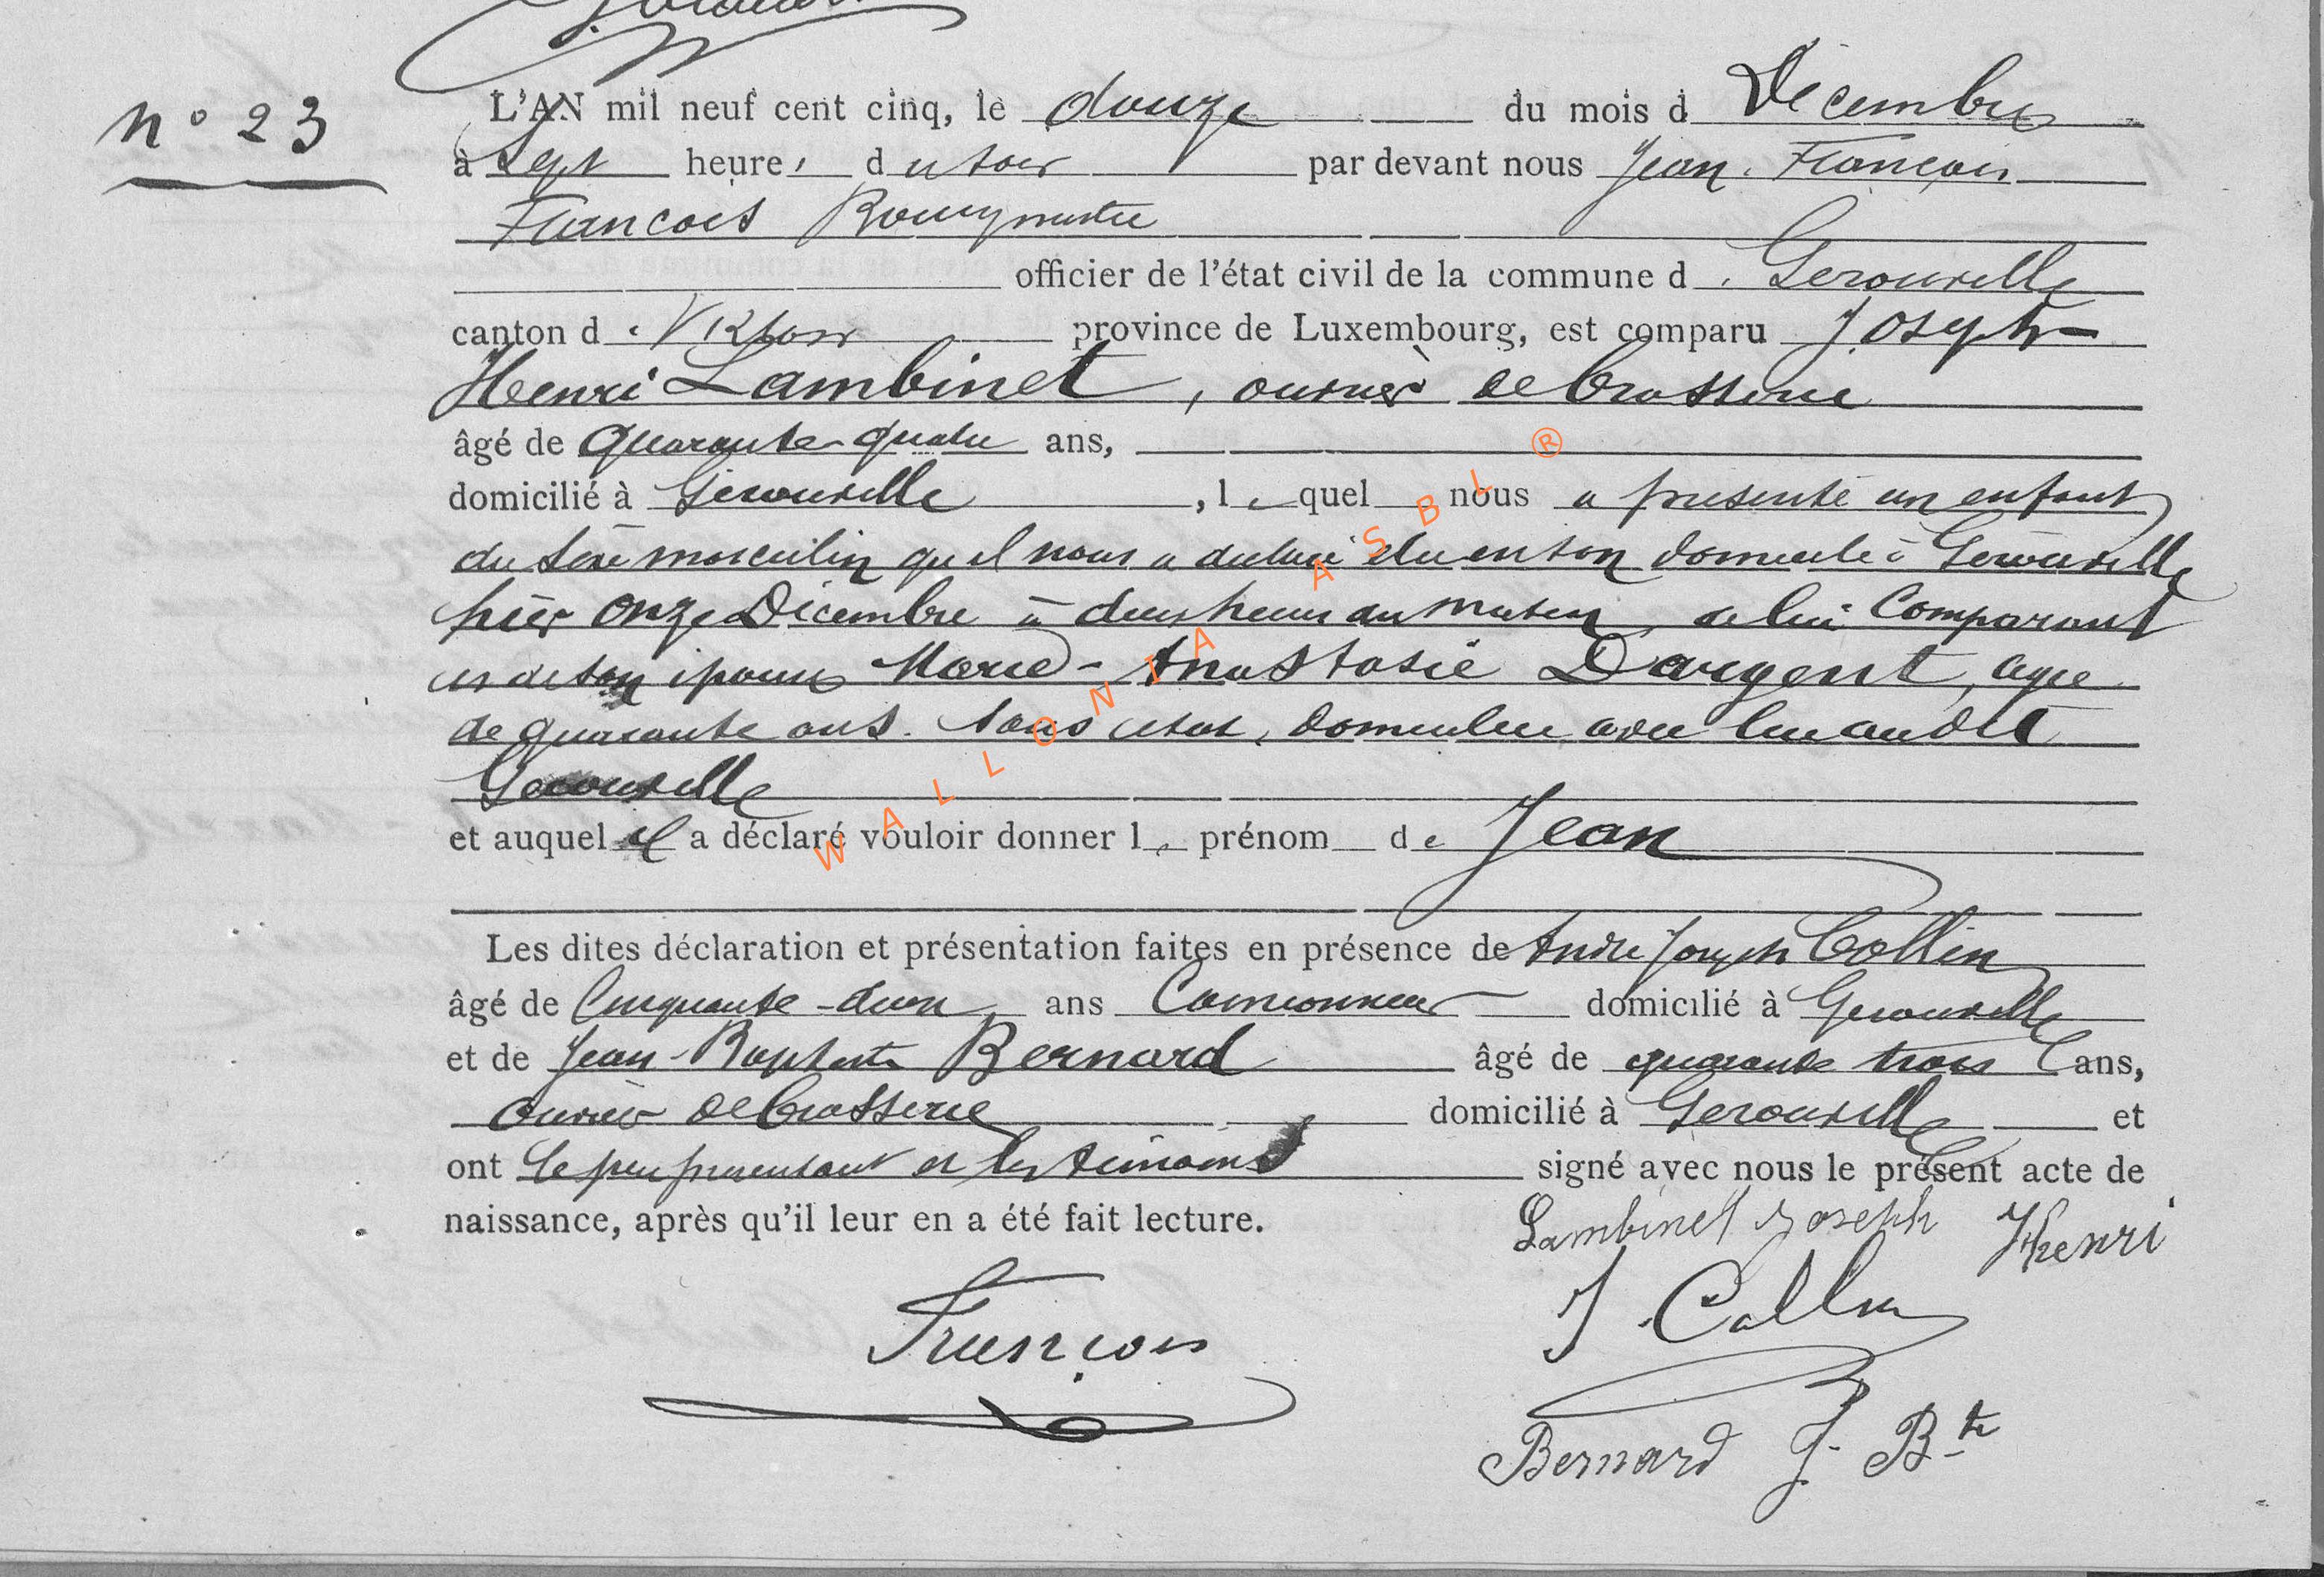 n° 23
L'AN mil neuf cent cinq, le douze du mois d Décembre
à Sept heures du soir par devant nous Jean-François
François Bourgmestre
officier de l'état civil de la commune de Gerouville
canton de Virton province de Luxembourg, est comparu Joseph
Henri Lambinet, ouvrier de brasserie
âgé de quarante-quatre ans,
domicilié à Gerouville, lequel nous a présenté un enfant
du sexe masculin qu'il nous a déclaré être né en son domicile à Gerouville
hier onze Décembre à deux heures du matin, de lui Comparant
et de son épouse Marie-Anastasie Dargent, agée
de quarante ans. Sans état, domiciliée avec lui audit
Gerouville
et auquel il a déclaré vouloir donner le prénom de Jean
Les dites déclaration et présentation faites en présence de André Joseph Collin
âgé de Cinquante-deux ans Camionneur domicilié à Gerouville
et de Jean-Baptiste Bernard âgé de quarante trois ans,
ouvrier de brasserie domicilié à Gerouville et
ont le père présentant et les témoins signé avec nous le présent acte de
naissance, après qu'il leur en a été fait lecture.
Lambinet Joseph Henri
J. Collin
François
Bernard J. Bte
WALLONIA ASBL ®